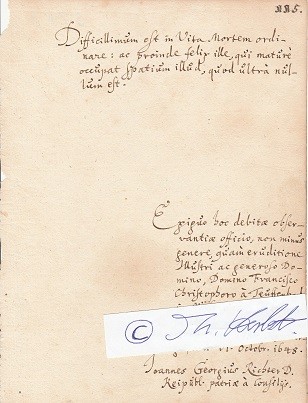 225.
Difficillimum est in Vita Mortem ordi-
nare: ac proinde felix ille, qui maturè
occupat spatium illud, quod ultrà nul-
lum est.
Exiguo hoc debitae obser-
vantiae officio, non minus
genere, quàm eruditione
Illustri ac generoso Do-
mino, Domino Francisco
Christophoro à
©
Octobr. 1648.
Joannes Georgius Richter D.
Reipubl. patriae à Consilijs.